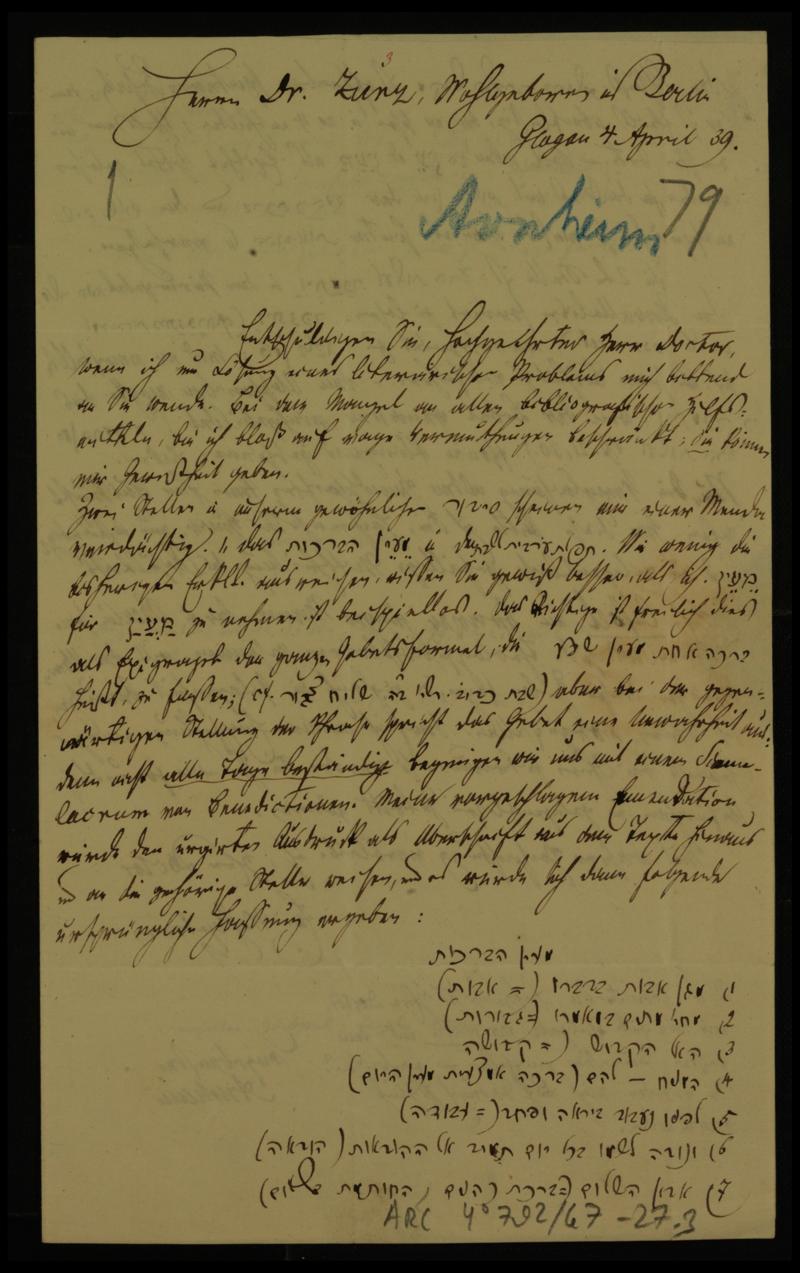 3
Herrn Dr. Zunz, Wohlgeboren in Berlin
Glogau 4 April 39.
1
Arnheim 79
Entschuldigen Sie, hochgeehrter Herr Doctor,
wenn ich um Lösung eines literarischen Problems mich bittend
an Sie wende. Bei dem Mangel an allen bibliografischen Hilfs-
mitteln, bin ich bloß auf vage Vermuthungen beschränkt; Sie können
mir Gewißheit geben.
Zwei Stellen in unserem gewöhnlichen סידור scheinen mir einer Menda
verdächtig. 1, das מעין הברכות u. Wie wenig die
bisherigen Erkll. ausreichen, wissen Sie gewiß besser, als ich. מעין
für מעין zu nehmen ist beispiellos. Das Richtige ist freilich dies
als Epigraph der ganzen Gebetsformel, die ברכה אחת מעין שבע
heißt, zu fassen; (cf. שבת) aber bei der gegen-
wärtigen Stellung der Phrase spricht das Gebet eine Unwahrheit aus;
denn nicht alle Tage beständig begnügen wir uns mit einem Simu-
lacrum von Benedictionen. Meine vorgeschlagene Emendation
würde den urgirten Ausdruck als Überschrift aus dem Texte hinaus
und an die gehörige Stelle weisen, und es würde sich dann folgende
ursprüngliche Fassung ergeben:
מעין הברכות
1, מגן אבות בדברו (= אבות)
2, מחיה מתים במאמרו (= גבורות)
3, האל הקדוש (= קדושה
4, המניח – להם (ברכה אמצעית מעין היום)
5, לפניו נעבוד ביראה ופחד (= עבודה)
6, ונודה לשמו בכל יום תמיד אל ההודאות (הודאה)
7, אדון השלום (= ברכת כהנים, החותמת בשלום)
ARC 4° 792/67 - 27.3